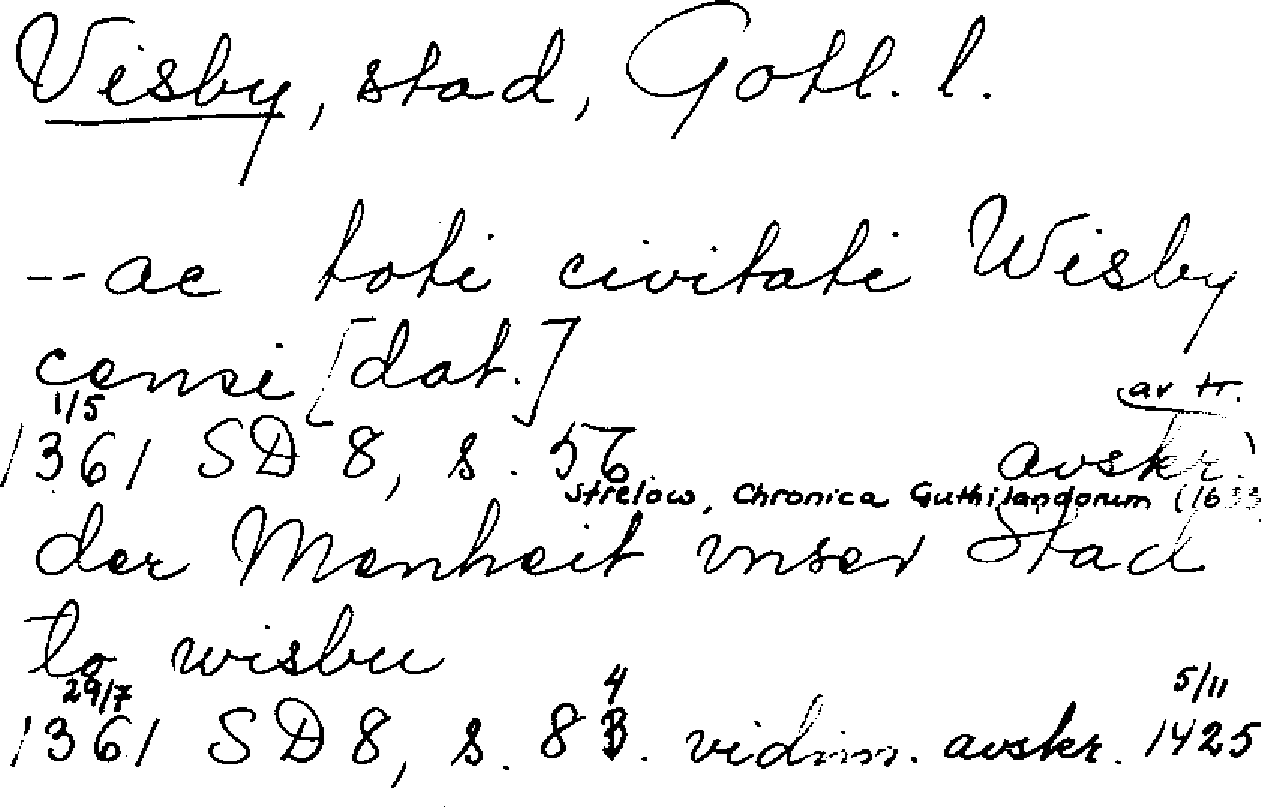 Visby, stad, Gotl. l.
-- ac toti civitati Wisby
censi [dat.]
1/5 av tr.
1361 SD 8, s. 56. avskr.
Strelow, Chronica Guthilandorum (1633
der Menheit vnser Stad
to wisbu
29/7 4 5/11
1361 SD 8, s. 8 . vidim. avskr. 1425